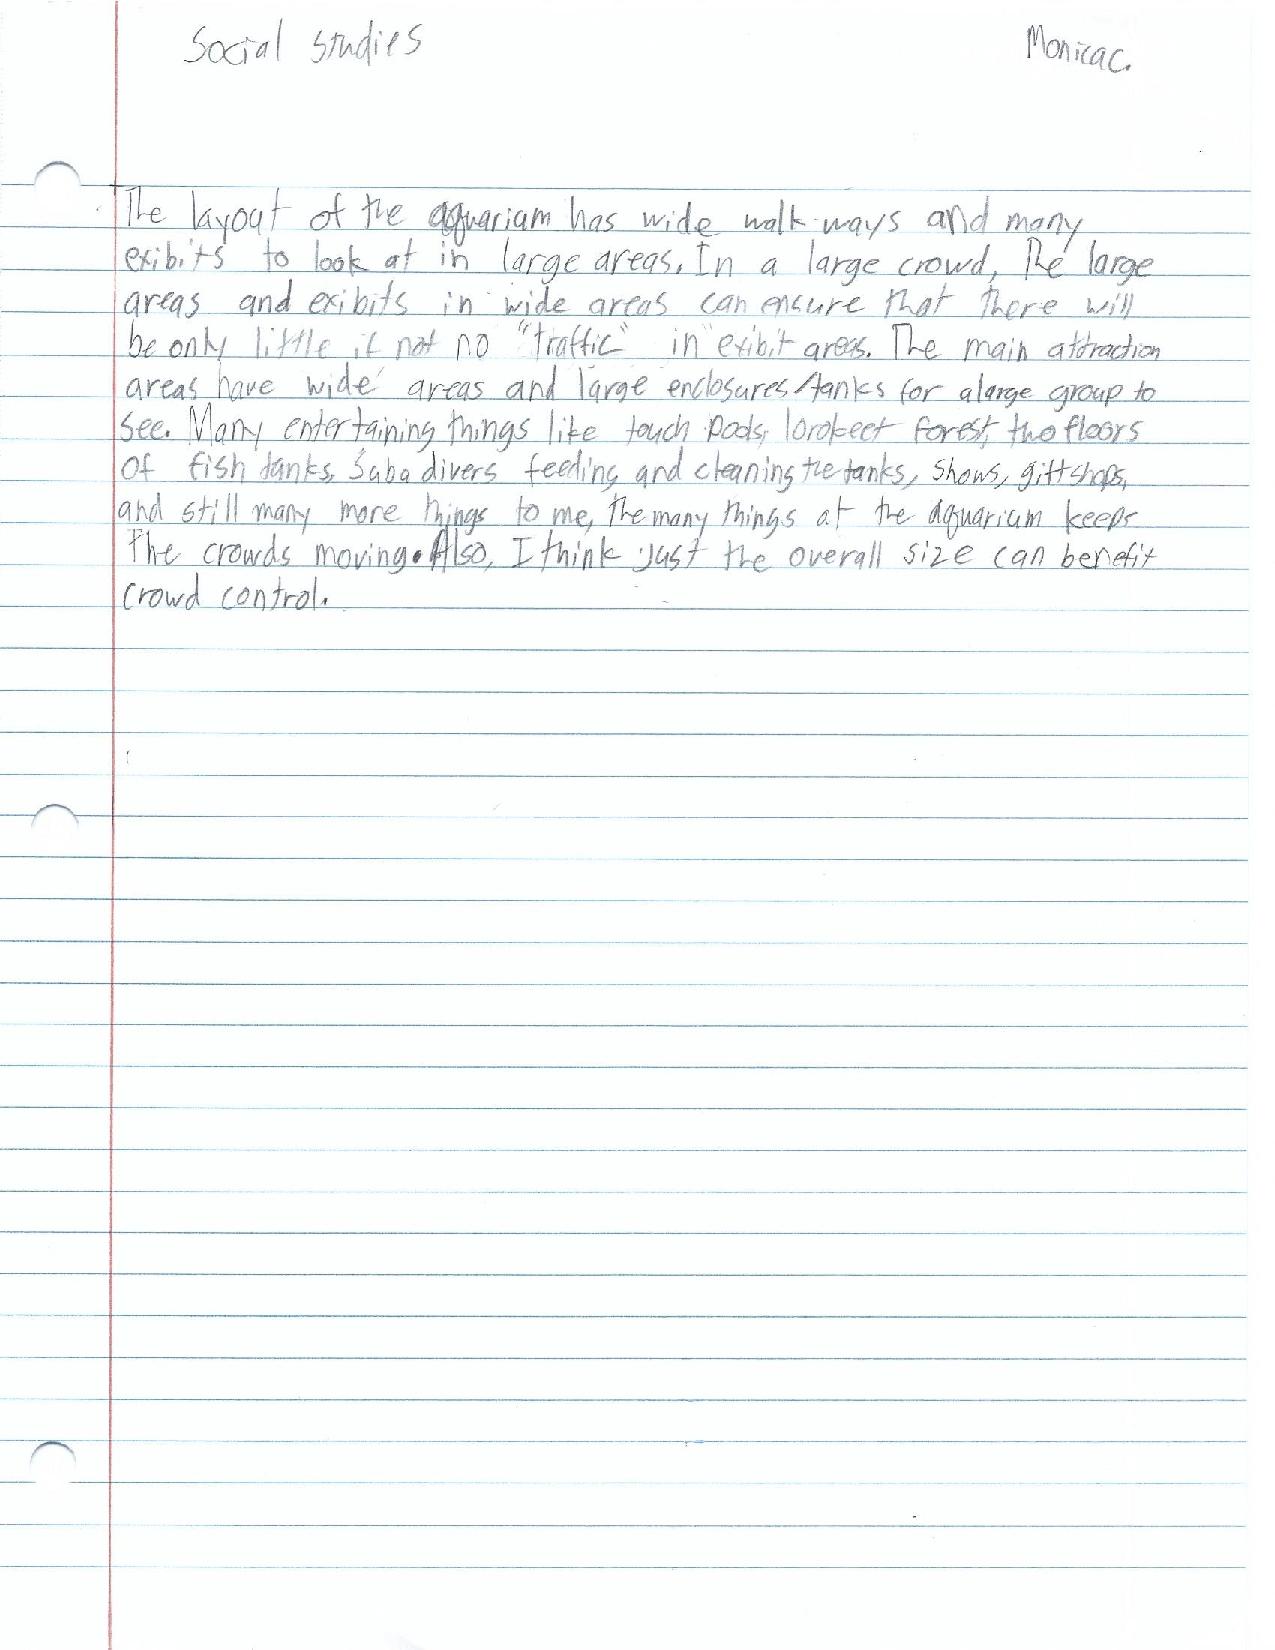 Social Studies
Monica C.
The layout of the aquarium has wide walk ways and many
exibits to look at in large areas. In a large crowd, The large
areas and exibits in wide areas can ensure that there will
be only little if not no "traffic" in exibit areas. The main attraction
areas have wide areas and large enclosures/tanks for a large group to
see. Many entertaining things like touch pods, lorokeet forest, two floors
of fish tanks, Suba divers feeding and cleaning the tanks, shows, giftshops,
and still many more things to me, The many things at the aquarium keeps
The crowds moving. Also, I think just the overall size can benefit
crowd control.